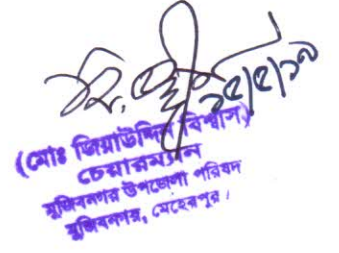 ১৫/৫/১৯
(মোঃ জিয়াউদ্দিন বিশ্বাস)
চেয়ারম্যান
মুজিবনগর উপজেলা পরিষদ
মুজিবনগর, মেহেরপুর।